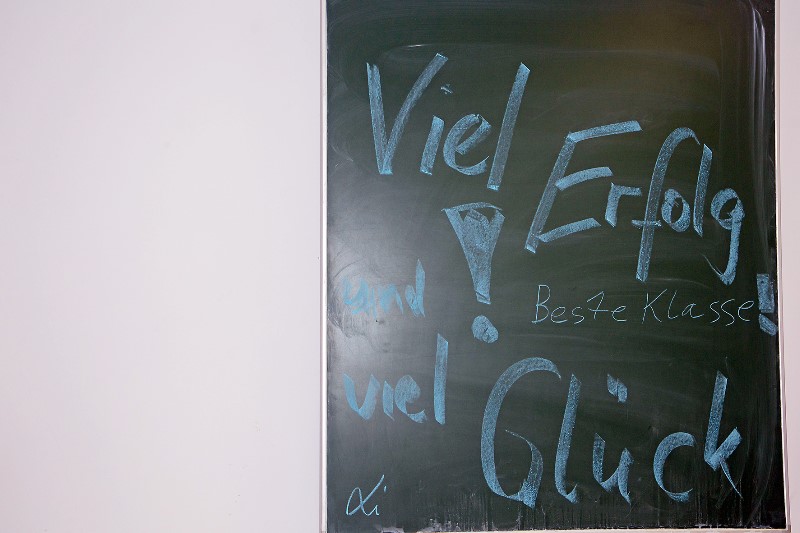 Viel
Erfolg
!
und
Beste Klasse!
viel
Glück
Li